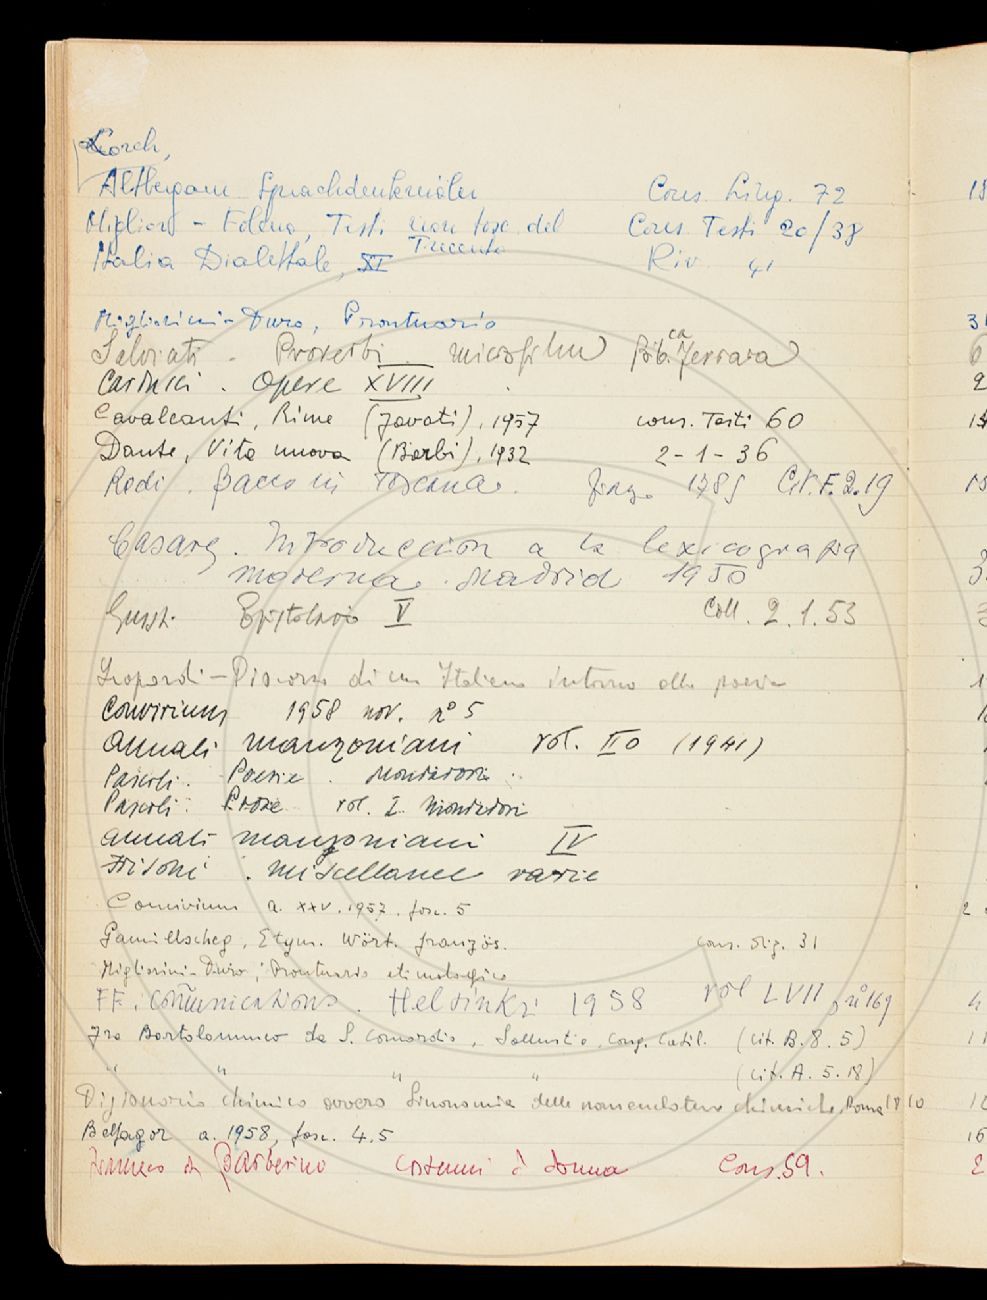 Lorck,
Altbergam. Sprachdenkmäler Cons. Ling. 72
Migliori - Folena, Testi non tosc. del Cons. Testi 20/38
Trecento
Italia Dialettale, XI Riv. 41
Migliorini-Duro, Prontuario
Salviati. Proverbi. microfilm Bib.ca Ferrara
Carducci. Opere XVIII
Cavalcanti, Rime (Favati), 1957 cons. Testi 60
Dante, Vita nuova (Barbi), 1932 2-1-36
Redi. Bacco in Toscana. Cit. F. 2. 19
Casares. Introduccion a la lexicografia
moderna. Madrid 1950
Giusti. Epistolario V Coll. 2.1.53
Leopardi - Discorso di un Italiano intorno alla poesia
Convivium 1958 nov. n° 5
Annali manzoniani vol. IIo (1941)
Pascoli. Poesie. Mondadori.
Pascoli. Prose vol. I Mondadori
Annali manzoniani IV
Fridoni. miscellanee varie
Convivium a. XXV. 1957. fasc. 5
Gamillscheg, Etym. Wört. französ. cons. Diz. 31
Migliorini-Duro, Prontuario etimologico
FF. Communications. Helsinki 1958 vol LVII, n° 169
Fra Bartolommeo da S. Concordio, Sallustio, Cong. Catil. (Cit. B. 8. 5)
" " " " (Cit. A. 5. 18)
Dizionario chimico ovvero Sinonomia delle nomenclature chimiche, Roma 1810
Belfagor a. 1958, fasc. 4.5
Francesco da Barberino Costumi di donna Cons. 59.